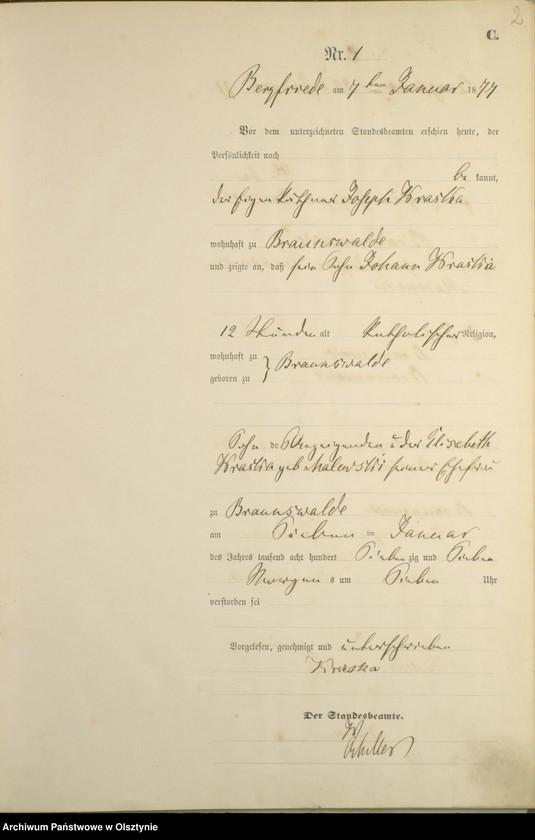 2
C.
Nr. 1
Bergfriede am 7ten Januar 1877
Vor dem unterzeichneten Standesbeamten erschien heute, der
Persönlichkeit nach
be kannt,
der Eigenkäthner Joseph Kraska
wohnhaft zu Braunswalde
und zeigte an, daß sein Sohn Johann Kraska
12 Stunden alt Katholischer Religion,
wohnhaft zu
geboren zu } Braunswalde
Sohn des Anzeigenden u der Elisabeth
Kraska geb Malewski seiner Ehefrau
zu Braunswalde
am Sieben ten Januar
des Jahres tausend acht hundert Sieben zig und Sieben
Morgen s um Sieben Uhr
verstorben sei
Vorgelesen, genehmigt und unterschrieben
Kraska
Der Standesbeamte.
Archiwum Państwowe w Olsztynie